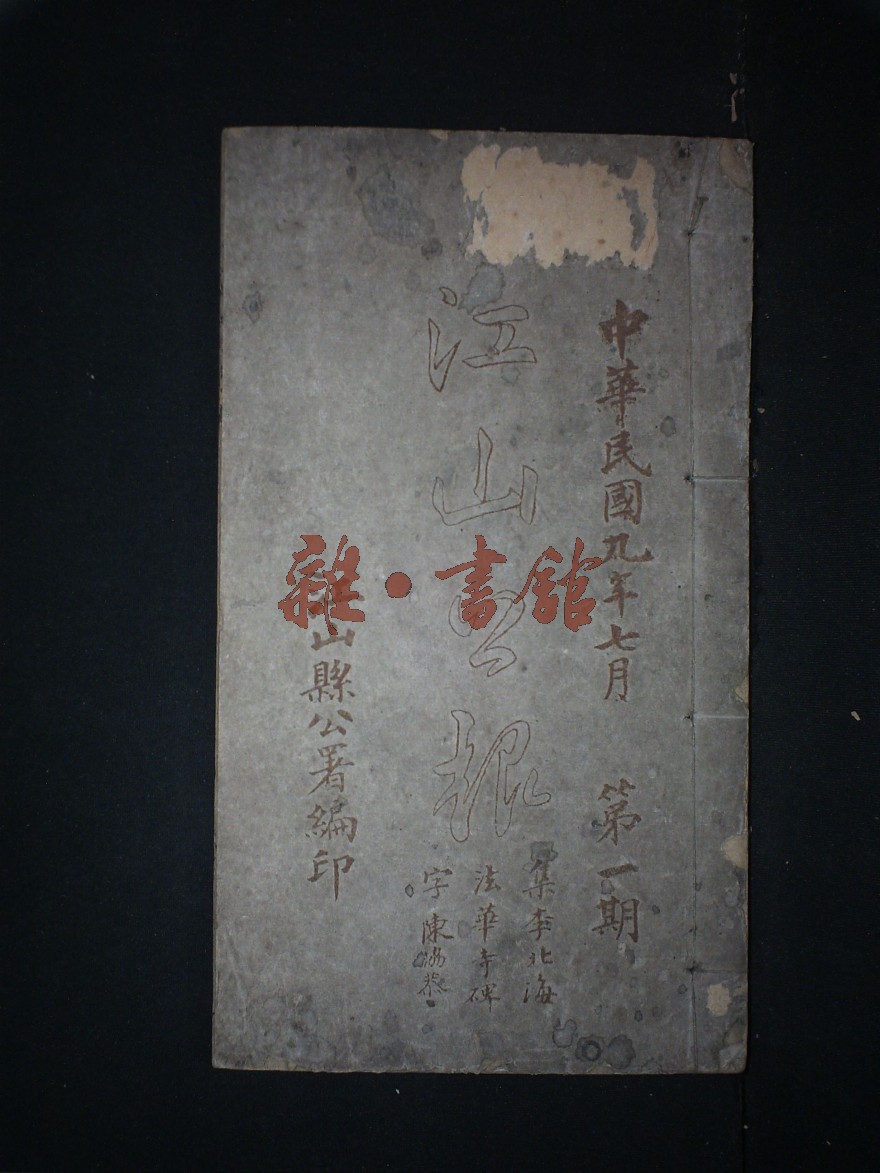 中華民國九年七月 第一期
江山公報
集李北海
法華寺碑
字陳協恭
山縣公署編印
雜·書館